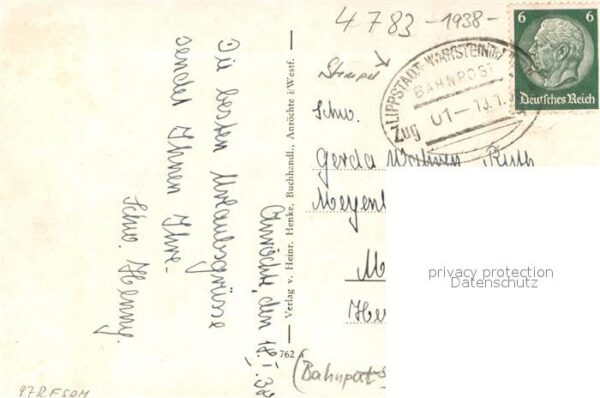 4783 -1938-
6 6
Deutsches Reich
LIPPSTADT-WARSTEIN
BAHNPOST
Zug 01-
Stempel
Schw.
Gerda Ruth
Meyen
M
He
privacy protection
Datenschutz
(Bahnpost
Verlag v. Heinr. Henke, Buchhandl., Anröchte i/Westf.
762
Anröchte, den 18.1.38
Die besten Urlaubsgrüsse
sendet Ihnen Ihre
Schw. Henny.
97RFSQM